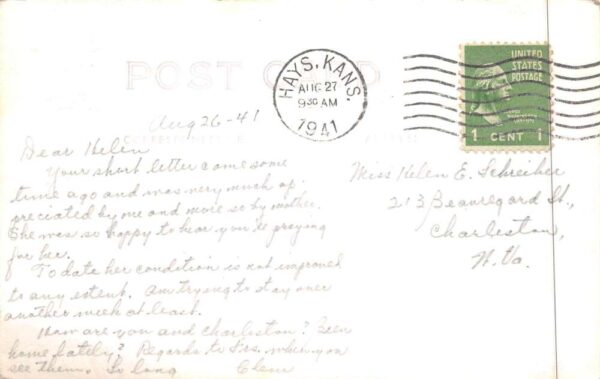 POST CARD
HAYS, KANS.
AUG 27
9 30 AM
1941
UNITED
STATES
POSTAGE
1 CENT 1
Aug 26-41
Dear Helen
Your short letter came some
time ago and was very much ap-
preciated by me and more so by mother.
She was so happy to hear you're praying
for her.
To date her condition is not improved
to any extent. Am trying to stay over
another week at least.
How are you and Charleston? Been
home lately? Regards to Frs. when you
see them. So long
Clem
Miss Helen E. Schreiber
213 Beauregard St.,
Charleston,
W. Va.